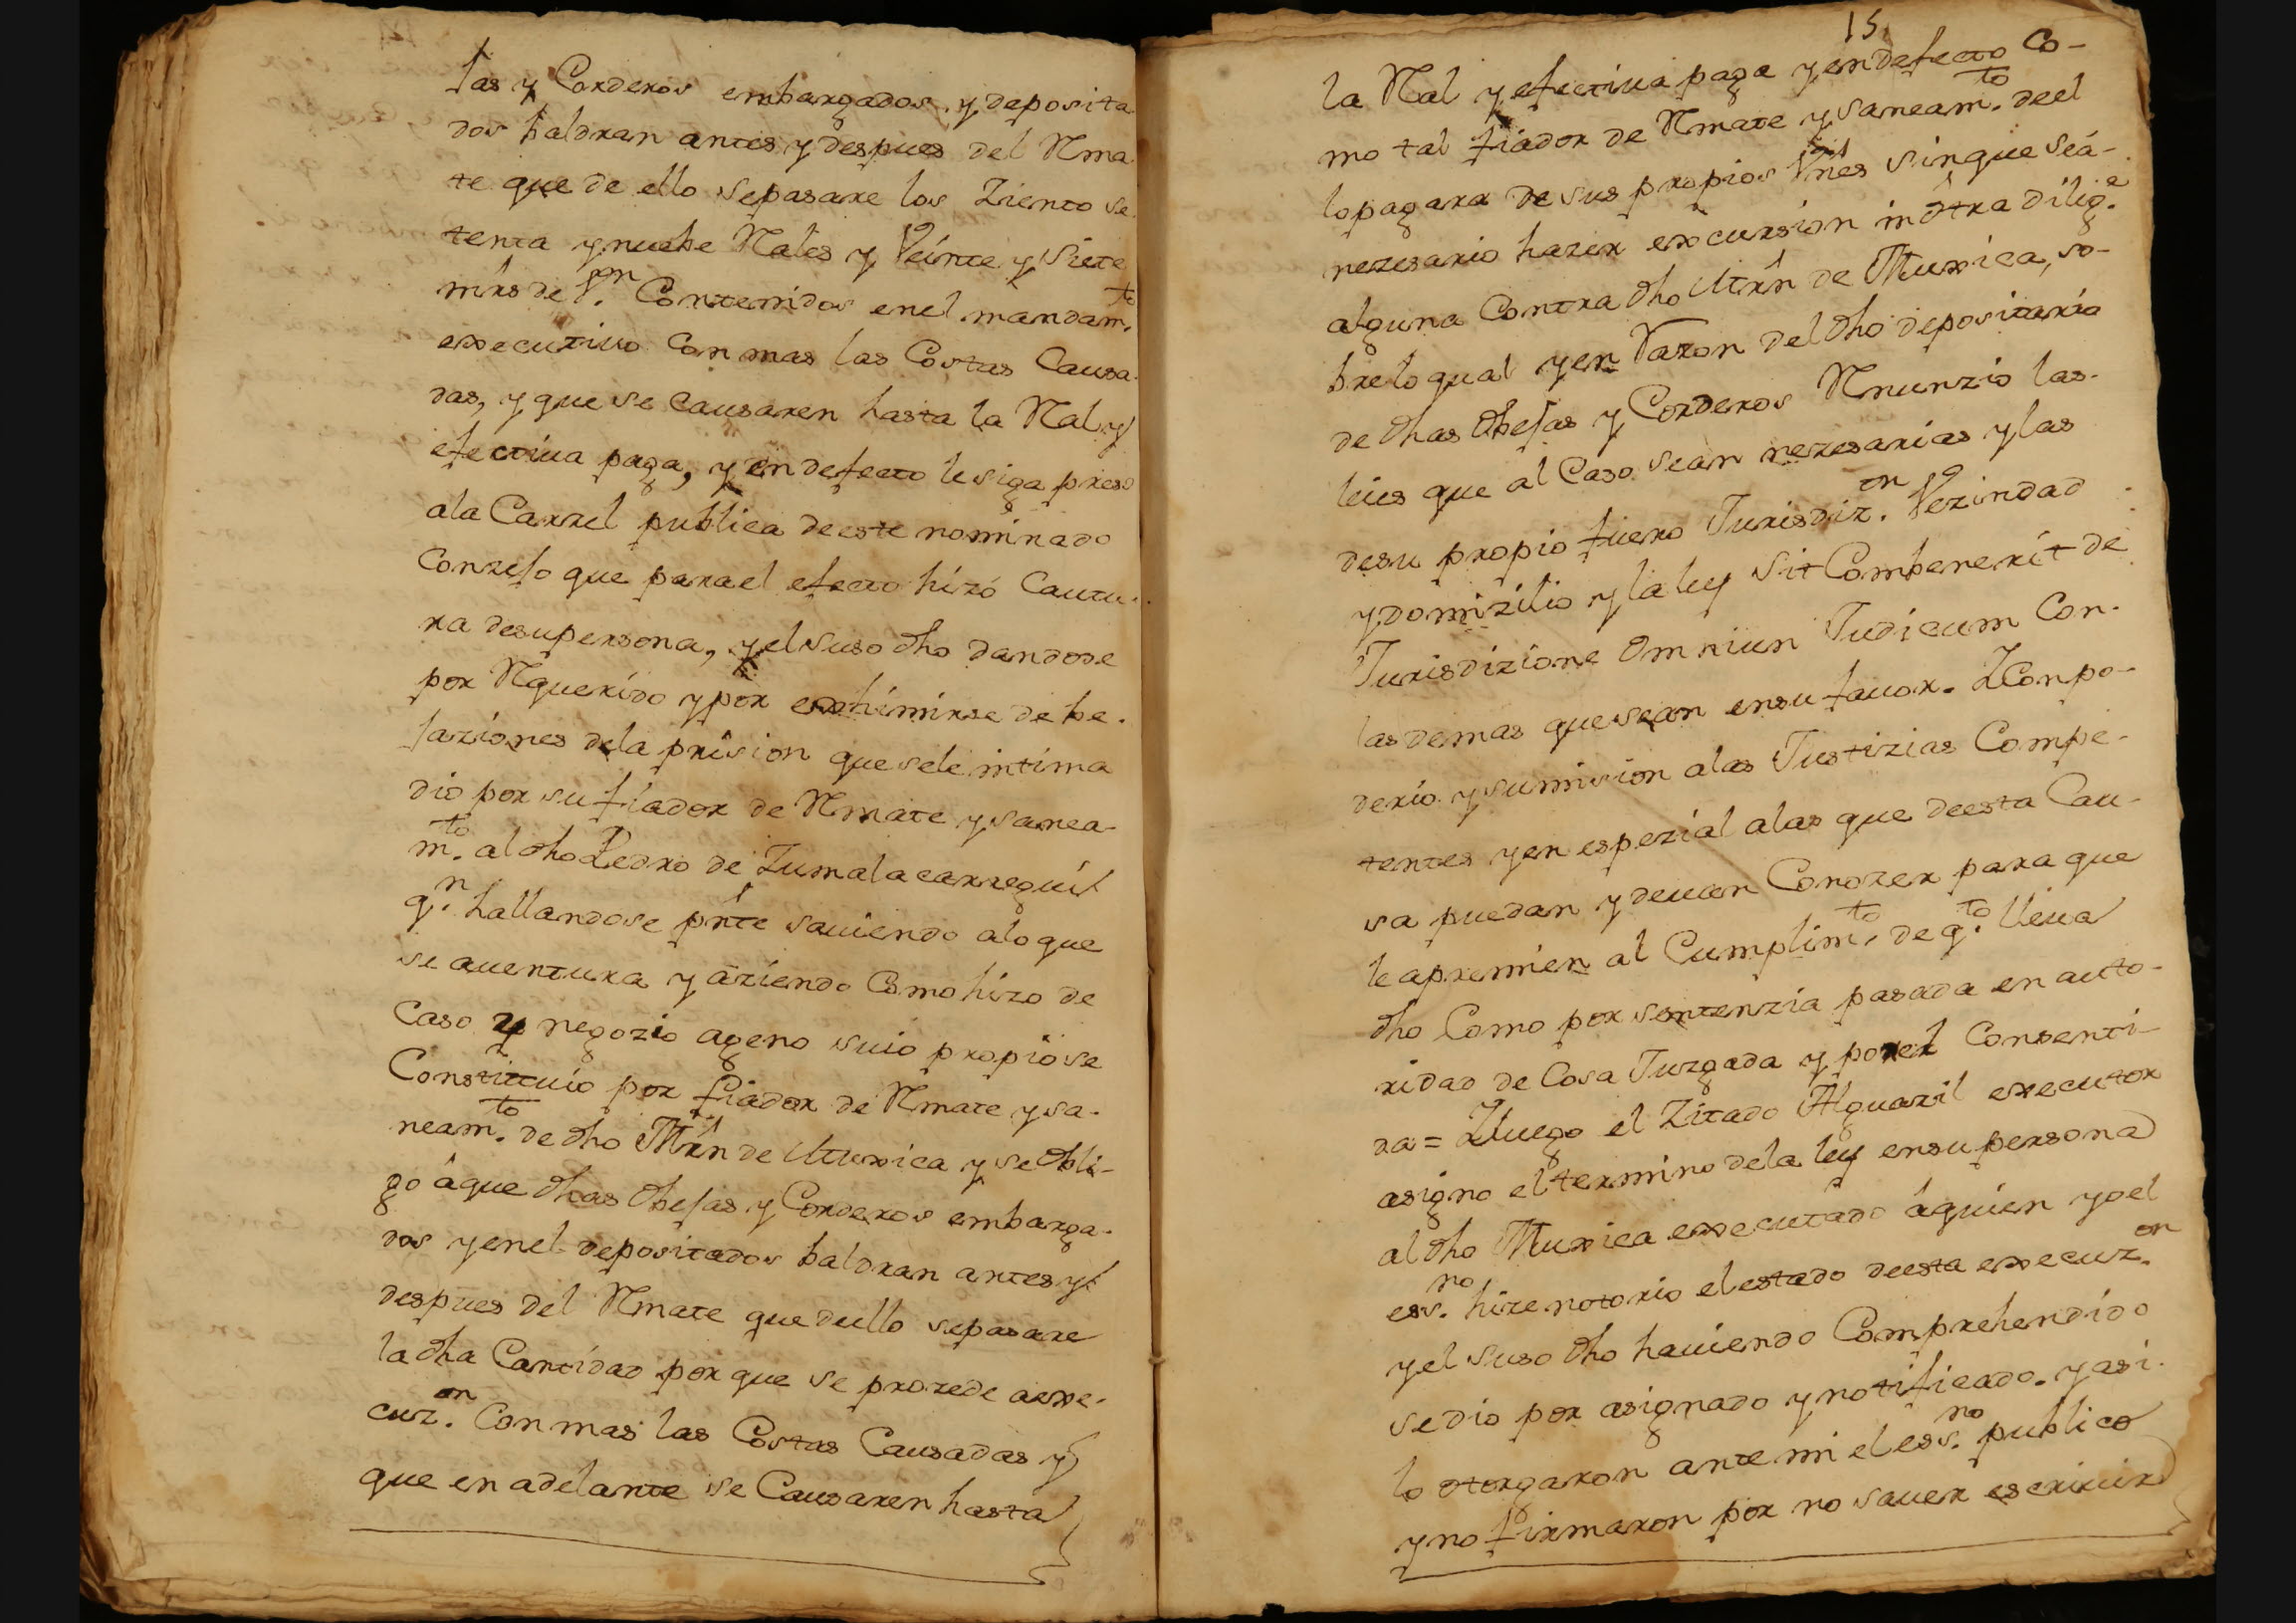 jas y Corderos embargados y deposita
dos baldran antes y despues del Rma
te que de ello sepasare los Ziento se
tenta ynuebe Rales y Veinte y Siete
mrs de V.on Contenidos enel mandam.to
executivo Con mas las Costas Causa
das, y que se Causaren hasta la Ral y
efectiua paga, y en defecto le siga preso
ala Carzel publica de este nominado
Conzejo que parael efecto hizó Cautu
ra desupersona, y el suso dho dandose
por Rquerido y por exhimirse de be
jaziones dela prision que sele intima
dio por su fiador de Rmate y sanea
m.to al dho Pedro de Zumalacarregui
q.n hallandose pnte sauiendo alo que
se auentura y aziendo Como hizo de
Caso y negozio ageno suio propio se
Constituio por fiador de Rmate y sa
neam.to de dho Mrn de Muxica y se Obli-
go áque dhas Obejas y Corderos embarga
dos yenel depositados baldran antes y
despues del Rmate que deello sepasare
la dha Cantidad por que se prozede aexe
cuz.on Con mas las Costas Causadas y
que en adelante se Causaren hasta
15
la Ral y efectiua paga y en defecto Co-
mo tal fiador de Rmate y saneam.to deel
lo pagara de sus propios Vnes sin que seá
nezesario hazer excursion in ótra dilig.a
alguna Contra dho Mrn de Muxica, so-
bre lo qual y en Razon del dho depositario
de dhas Obejas y Corderos Rnunzio las
leies que al Caso sean nezesarias y las
desu propio fuero Jurisdiz.on Vezindad
y domizilio y la ley Sit Combenerit de
Jurisdizione Omniun Judicum Con
las demas que sean ensu fauor. Y Con po-
derio y sumision alas Justizias Compe-
tentes y en espezial alas que deesta Cau-
sa puedan y deuan Conozer para que
le apremien al Cumplim.to de q.to lleua
dho Como por sentenzia pasada en auto-
ridad de Cosa Juzgada y por el Consenti-
da = Y luego el Zitado Alguazil executor
asigno el termino dela ley ensu persona
al dho Muxica executado áquien yo el
ess.no hize notorio el estado deesta execuz.on
y el suso dho hauiendo Comprehendido
se dio por asignado y notificado. y asi
lo otorgaron ante mi el ess.no publico
y no firmaron por no sauer escriuir